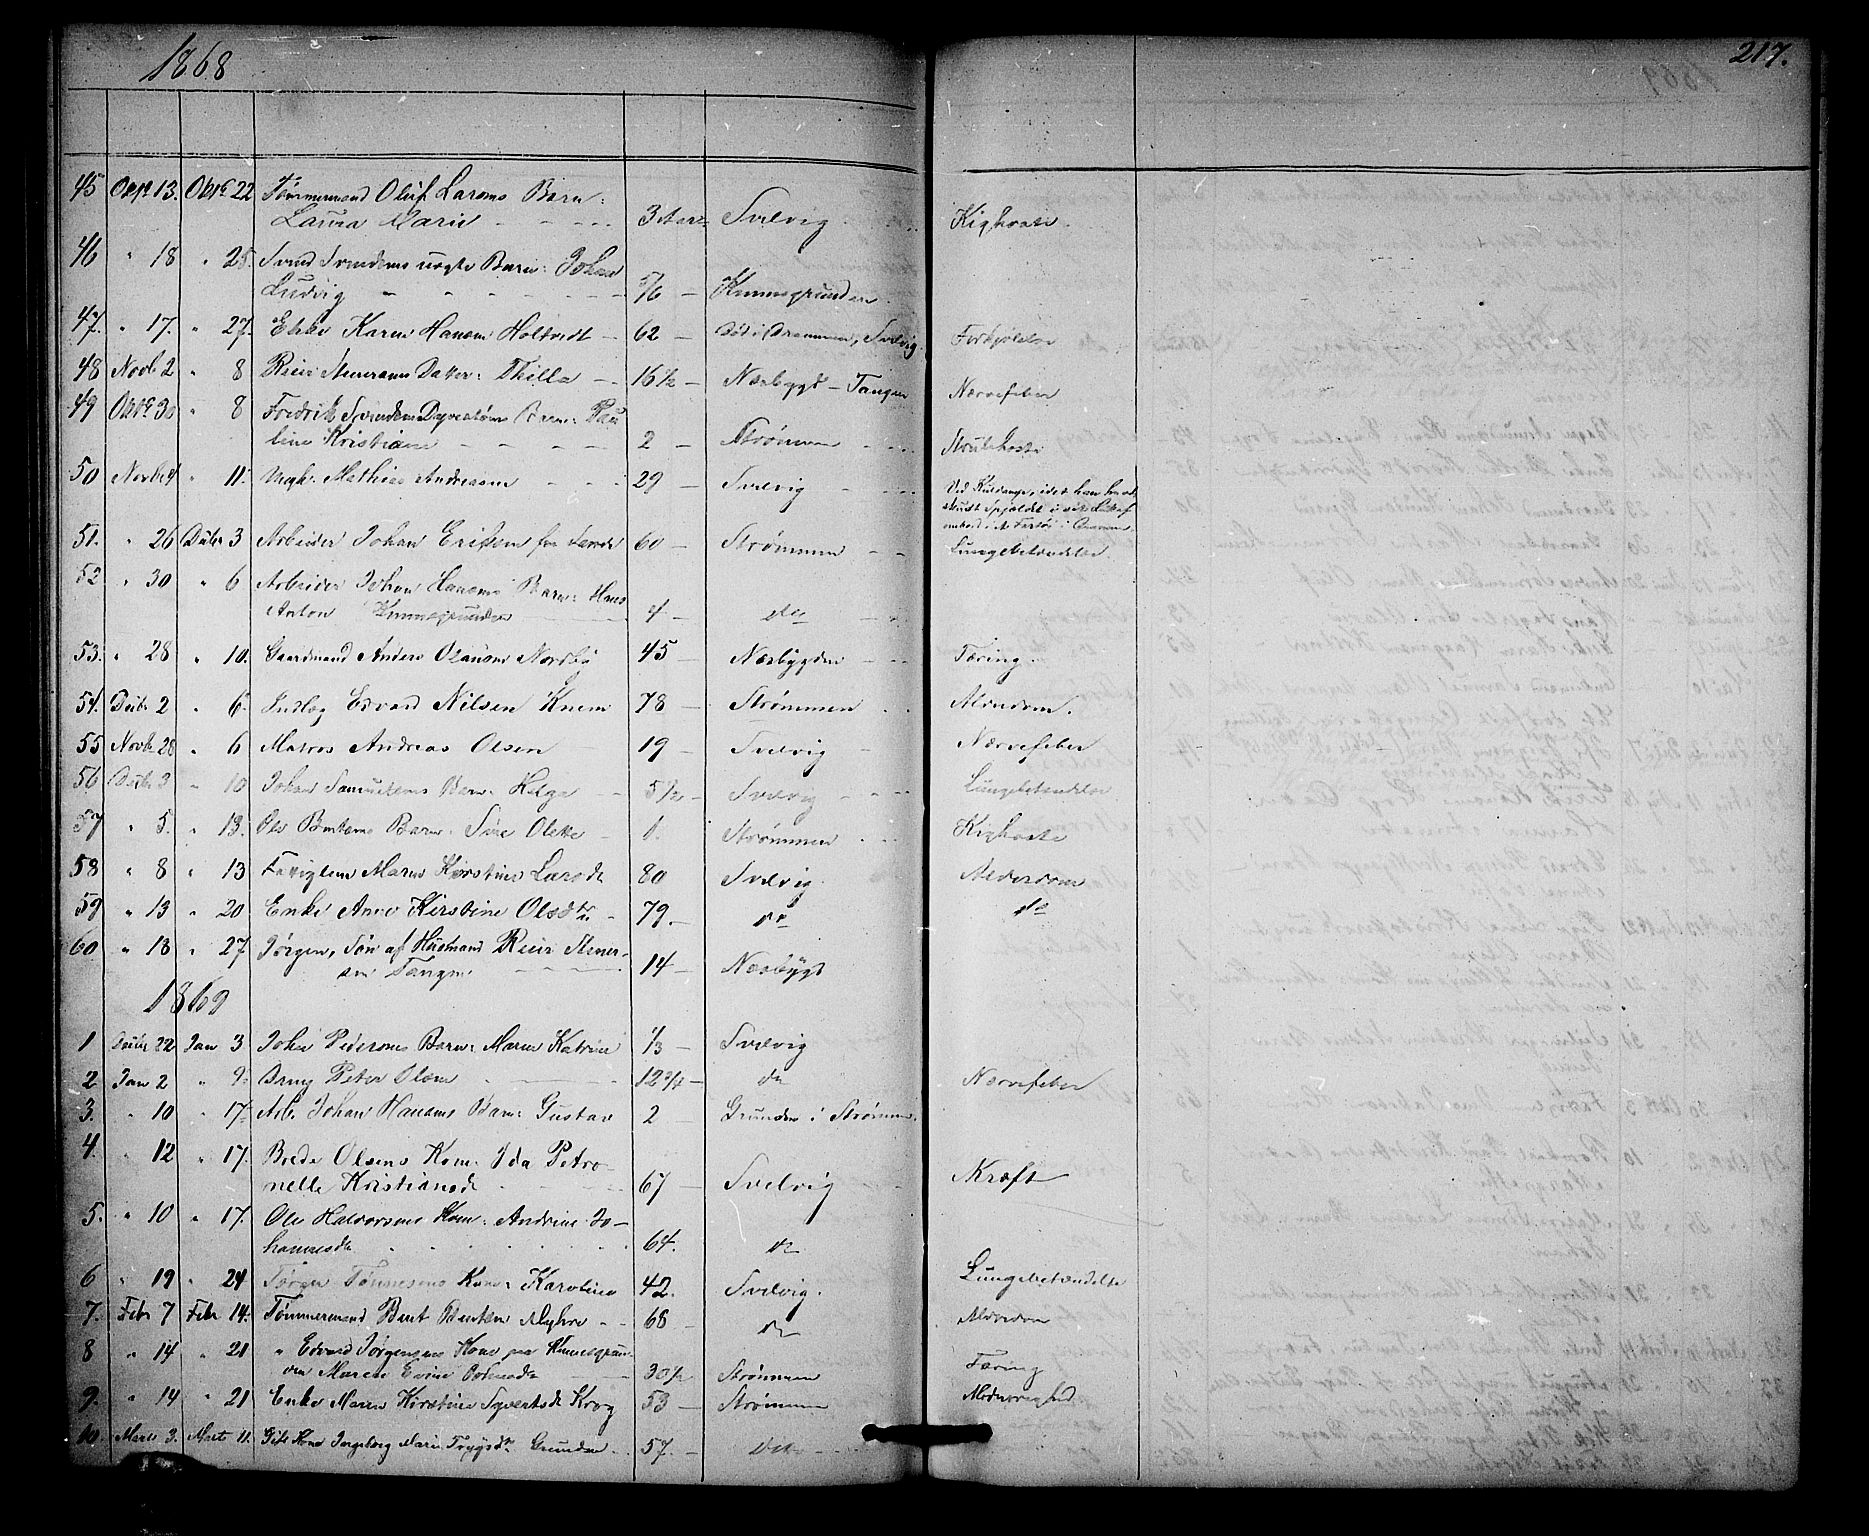 1868
217.
45 Octr 13. Oktr 22 Tømmermand Oluf Larsens Barn:
Laura Marie 3 Aar Svelvig Kighoste
46 " 18 " 25. Svend Svendsens uægte Barn: Johan
Ludvig 5/6 — Knemsgrunden
47. " 17. " 27. Enke Karen Hansen Holtvedt — 62 — Død i Drammen, Svelvig. Forkjølelse
48 Novb 2 " 8 Reier Stenersens Datter: Thilla 16 1/2 — Næsbygd — Tangen Nærvefeber
49 Oktr 30 " 8 Fredrik Svendsen Dyrestøens Barn: Pau
line Kristiane 2 — Strømmen Strubehoste
50 Novbr 4 " 11. Ungk. Mathias Andreasen 29 — Svelvig Ved Kuldamp, idet han havde
skudt Spjældet i
ombord i et Fartøi i Drammen.
51. " 26 Decbr 3 Arbeider Johan Eriksen fra 60 — Strømmen Lungebetændelse.
52 " 30 " 6 Arbeider Johan Hansens Barn: Hans
Anton Knemsgrunden 4 — do
53. " 28 " 10. Gaardmand Anders Olausen Nordby 45 — Næsbygden Tæring.
54. Decbr 2 " 6. Indlæg Edvard Nilsen Knem 78 — Strømmen Alderdom.
55 Novbr 28 " 6 Matros Andreas Olsen 19 — Svelvig Nærvefeber
56 Decbr 3 " 10 Johan Samuelsens Barn: Helga 5 1/2 — Svelvig Lungebetændelse
57 " 5. " 13. Ole Bentsens Barn: Olette 1. Strømmen Kighoste
58 " 8 " 13 Fattiglem Maren Kirstine Larsdt 80 Svelvig Alderdom
59 " 13 " 20 Enke Anne Kirstine Olsdtr 79. — do do
60 " 18 " 27 Jørgen, Søn af Husmand Reier Stener-
sen Tangen 14 — Næsbygd
1869
1 Decbr 22 Jan 3 Johan Pedersens Barn: Maren Katrine 1/3 — Svelvig
2 Jan 2 " 9. Dreng Peter Olsen 12 3/4 — do Nærvefeber
3. " 10 " 17. Arb. Johan Hansens Barn: Gustav 2 Grunden i Strømmen.
4. " 12 " 17. Brede Olsens Kone: Ida Petro-
nelle Kristiansdt 67 — Svelvig Kræft
5. " 10 " 17. Ole Halvorsens Kone: Andrine Jo-
hannesdt 64. do
6 " 19 " 24 Jørgen Tønnesens Kone: Karoline 42. Svelvig. Lungebetændelse
7. Febr 7 Febr 14. Tømmermand Bent Bentsen Myhre 68 — do Alderdom
8 " 14 " 21 " Edvard Jørgensens Kone paa Knemsgrun-
den Marete Evine 30 1/2 Strømmen Tæring
9. " 14 " 21 Enke Maren Kirstine Syvertsdt Krog 53 — Strømmen
10. Marts 3. Marts 11. Gift Kone Ingeborg Marie Grunden 57. — do